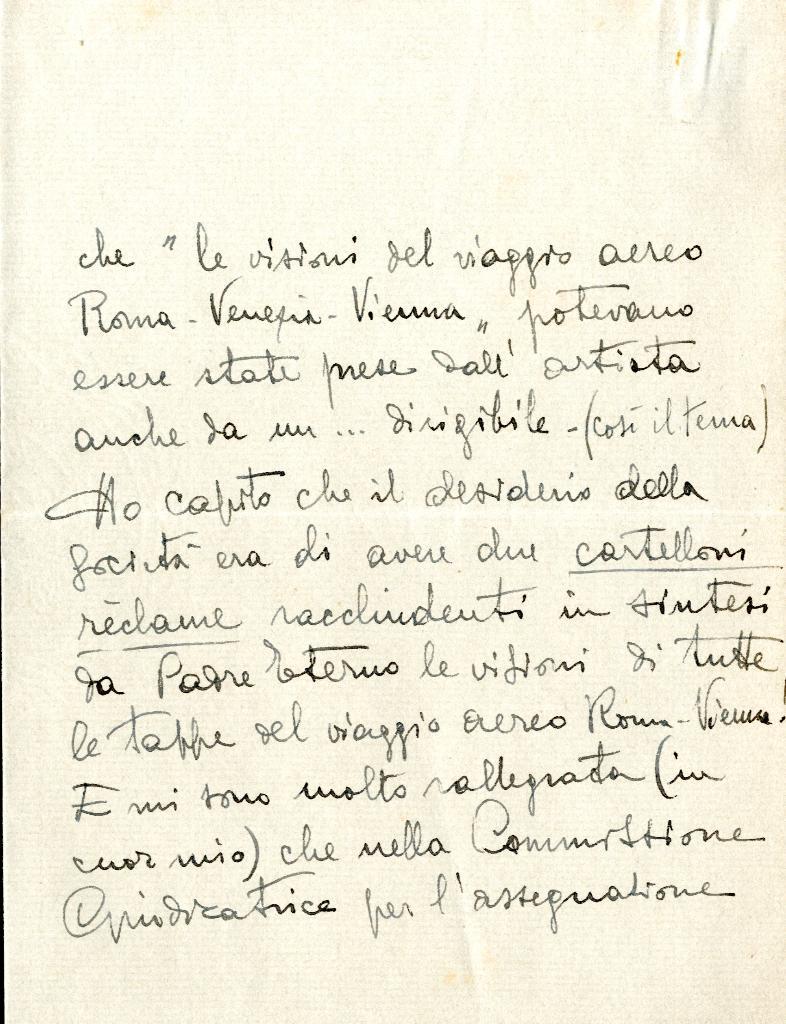 che " le visioni del viaggio aereo
Roma - Venezia - Vienna „ potevano
essere state prese dall' artista
anche da un ... dirigibile - (così il tema)
Ho capito che il desiderio della
Società era di avere due cartelloni
rèclame racchiudenti in sintesi
da Padre Eterno le visioni di tutte
le tappe del viaggio aereo Roma - Vienna!
E mi sono molto rallegrata (in
cuor mio) che nella Commissione
Giudicatrice per l'assegnazione